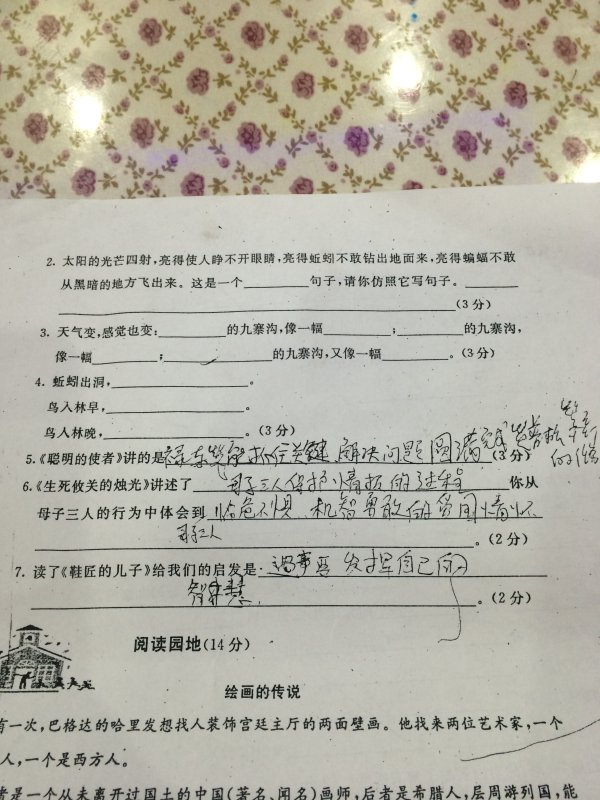 2. 太阳的光芒四射,亮得使人睁不开眼睛,亮得蚯蚓不敢钻出地面来,亮得蝙蝠不敢
从黑暗的地方飞出来。这是一个________句子,请你仿照它写句子。________
________(3分)
3. 天气变,感觉也变:________的九寨沟,像一幅________;________的九寨沟,
像一幅________;________的九寨沟,又像一幅________。(3分)
4. 蚯蚓出洞,________。
鸟入林早,________。
鸟人林晚,________。(3分)
5.《聪明的使者》讲的是 抓住关键 解决问题 圆满完成 (3分)
6.《生死攸关的烛光》讲述了 母子三人保护情报的过程 你从
母子三人的行为中体会到 临危不惧 机智勇敢的爱国情怀
母子三人 。(2分)
7. 读了《鞋匠的儿子》给我们的启发是 遇事要 发挥自己的
智慧 。(2分)
阅读园地(14分)
绘画的传说
有一次,巴格达的哈里发想找人装饰宫廷主厅的两面壁画。他找来两位艺术家,一个
人,一个是西方人。
者是一个从未离开过国土的中国(著名、闻名)画师,后者是希腊人,层周游列国,能